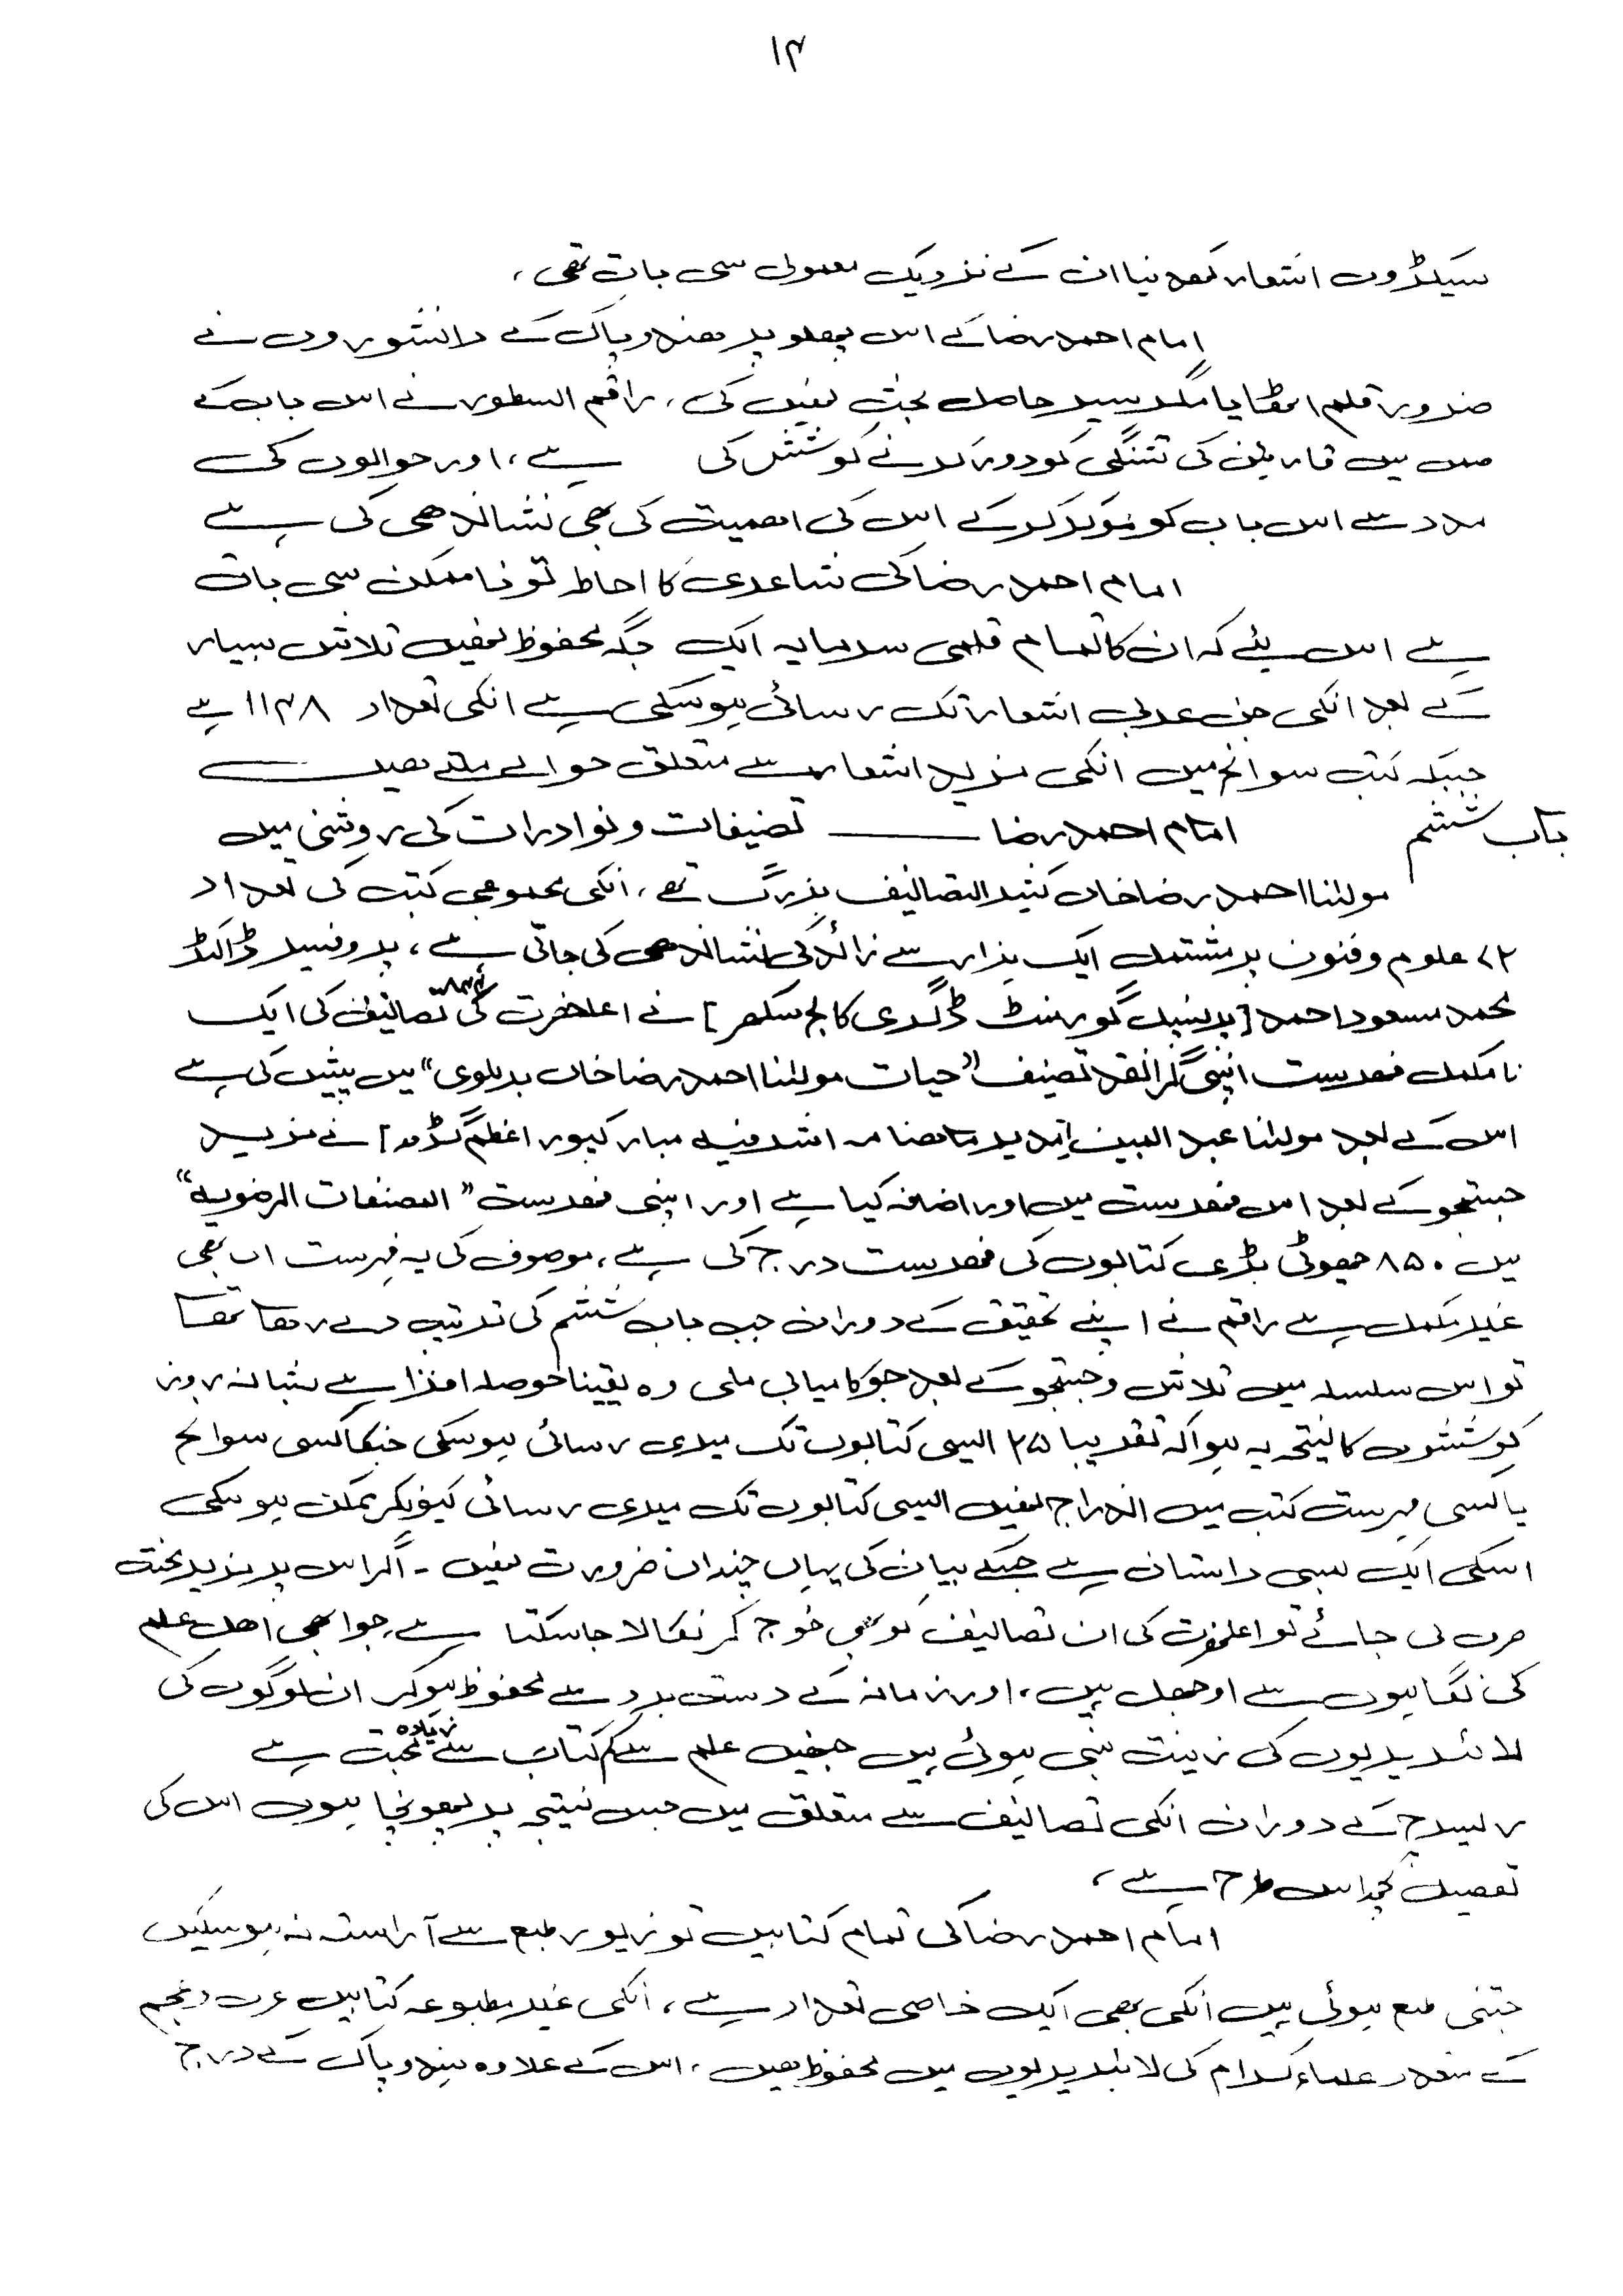 ۱۴
سیکڑوں اشعار کہدینا ان کے نزدیک معمولی سی بات تھی،
امام احمد رضا کے اس پہلو پر ھند و پاک کے دانشوروں نے
ضرور قلم اٹھایا مگر سیر حاصل بحث نھیں کی، راقم السطور نے اس باب کے
میں قارئین کی تشنگی کو دور کرنے کوشش کی ہے، اور حوالوں کی
مدد سے اس باب کو موید کر کے اس کی اھمیت کی بھی نشاندھی کی ہے
امام احمد رضا کی شاعری کا احاطہ تو ناممکن سی بات
ہے اس لئے کہ ان کا تمام قلمی سرمایہ ایک جگہ محفوظ نھیں تلاش بسیار
کے بعد انکی جن عربی اشعار تک رسائی ہوسکی ہے انکی تعداد ۱۱۴۸ ہے
جبکہ کتب سوانح میں انکی مزید اشعار سے متعلق حوالے ملتے ھیں
باب ششم امام احمد رضا —— تصنیفات و نوادرات کی روشنی میں
مولٰنا احمد رضا خاں کثیر التصانیف بزرگ تھے، انکی مجموعی کتب کی تعداد
۷۲ علوم و فنون پر مشتمل ایک ہزار سے زائد کی نشاندھی کی جاتی ہے، پروفیسر ڈاکٹر
محمد مسعود احمد [پرنسپل گورمنٹ ڈگری کالج سکھر] نے اعلحضرت کی تصانیف کی ایک
نامکمل فھرست اپنی گرانقدر تصنیف "حیات مولٰنا احمد رضا خاں بریلوی" میں پیش کی ہے
اس کے بعد مولٰنا عبد المبین [مدیر ماھنامہ اشرفیہ مبارکپور اعظم گڑھ] نے مزید
جستجو کے بعد اس فھرست میں اور اضافہ کیا ہے اور اپنی فھرست "المصنفات الرضویہ"
میں ۸۵۰ چھوٹی بڑی کتابوں کی فھرست درج کی ہے، موصوف کی یہ فہرست اب بھی
غیر مکمل ہے راقم نے اپنے تحقیق کے دوران جب باب ششم کی ترتیب دے رھا تھا
تو اس سلسلہ میں تلاش و جستجو کے بعد جو کامیابی ملی وہ یقینا حوصلہ افزا ہے شبانہ روز
کوششوں کا نتیجہ یہ ہوا کہ تقریبا ۲۵ ایسی کتابوں تک میری رسائی ہوسکی جنکا کسی سوانح
یا کسی فہرست کتب میں اندراج نھیں ایسی کتابوں تک میری رسائی کیونکر ممکن ہوسکی
اسکی ایک لمبی داستان ہے جسکے بیان کی یہاں چنداں ضرورت نھیں ۔ اگر اس پر مزید محنت
صرف کی جائے تو اعلحضرت کی ان تصانیف کو بھی کھوج کر نکالا جاسکتا ہے جو ابھی اھل علم
کی نگاہوں سے اوجھل ہیں، اور زمانہ کے دست برد سے محفوظ ہوکر ان لوگوں کی
لائبریریوں کی زینت بنی ہوئی ہیں جنھیں علم سے کم کتاب سے زیادہ محبت ہے
ریسرچ کے دوران انکی تصانیف سے متعلق میں جس نتیجہ پر پھونچا ہوں اس کی
تفصیل کچھ اس طرح ہے،
امام احمد رضا کی تمام کتابیں تو زیور طبع سے آراستہ نہ ہوسکیں
جتنی طبع ہوئی ہیں انکی بھی ایک خاصی تعداد ہے، انکی غیر مطبوعہ کتابیں عرب و عجم
کے متعدد علماء کرام کی لائبریریوں میں محفوظ ھیں، اس کے علاوہ ہند و پاک کے درج